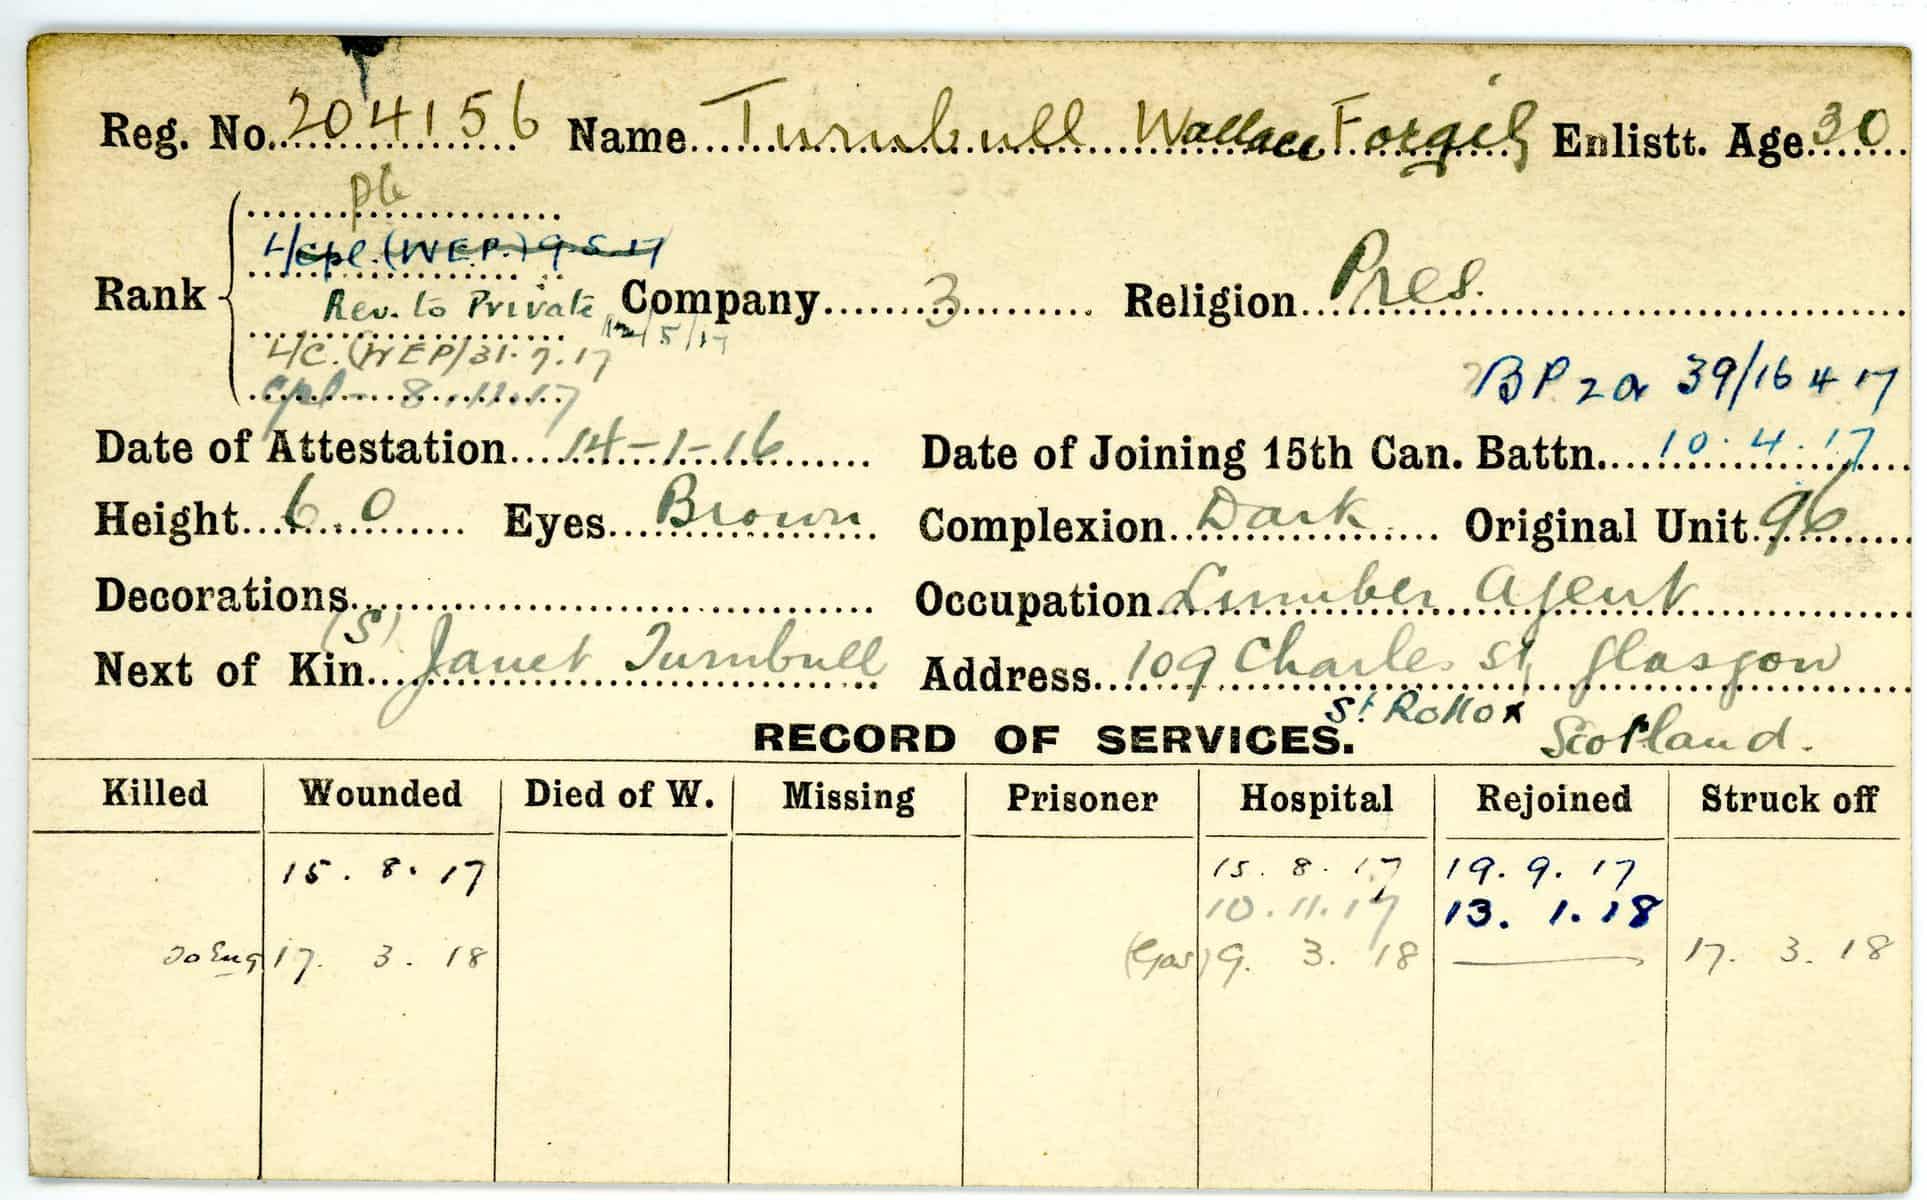 Reg. No. 204156 Name Turnbull Wallace Enlistt. Age 30
pte
L/cpl. (W.E.P.) 9.5.17
Rank Rev. to Private 12/5/17 Company 3 Religion Pres.
L/C. (WEP) 31.7.17
cpl - 8.11.17 BP 2a 39/16 4 17
Date of Attestation 14-1-16 Date of Joining 15th Can. Battn. 10.4.17
Height 6.0 Eyes Brown Complexion Dark Original Unit 96
Decorations Occupation Lumber Agent
Next of Kin (S) Janet Turnbull Address 109 Charles St, Glasgow
St Rollox Scotland.
RECORD OF SERVICES.
Killed Wounded Died of W. Missing Prisoner Hospital Rejoined Struck off
15. 8. 17 15. 8. 17 19. 9. 17
10.11.17 13. 1. 18
To Eng 17. 3. 18 (Gas) 9. 3. 18 17. 3. 18